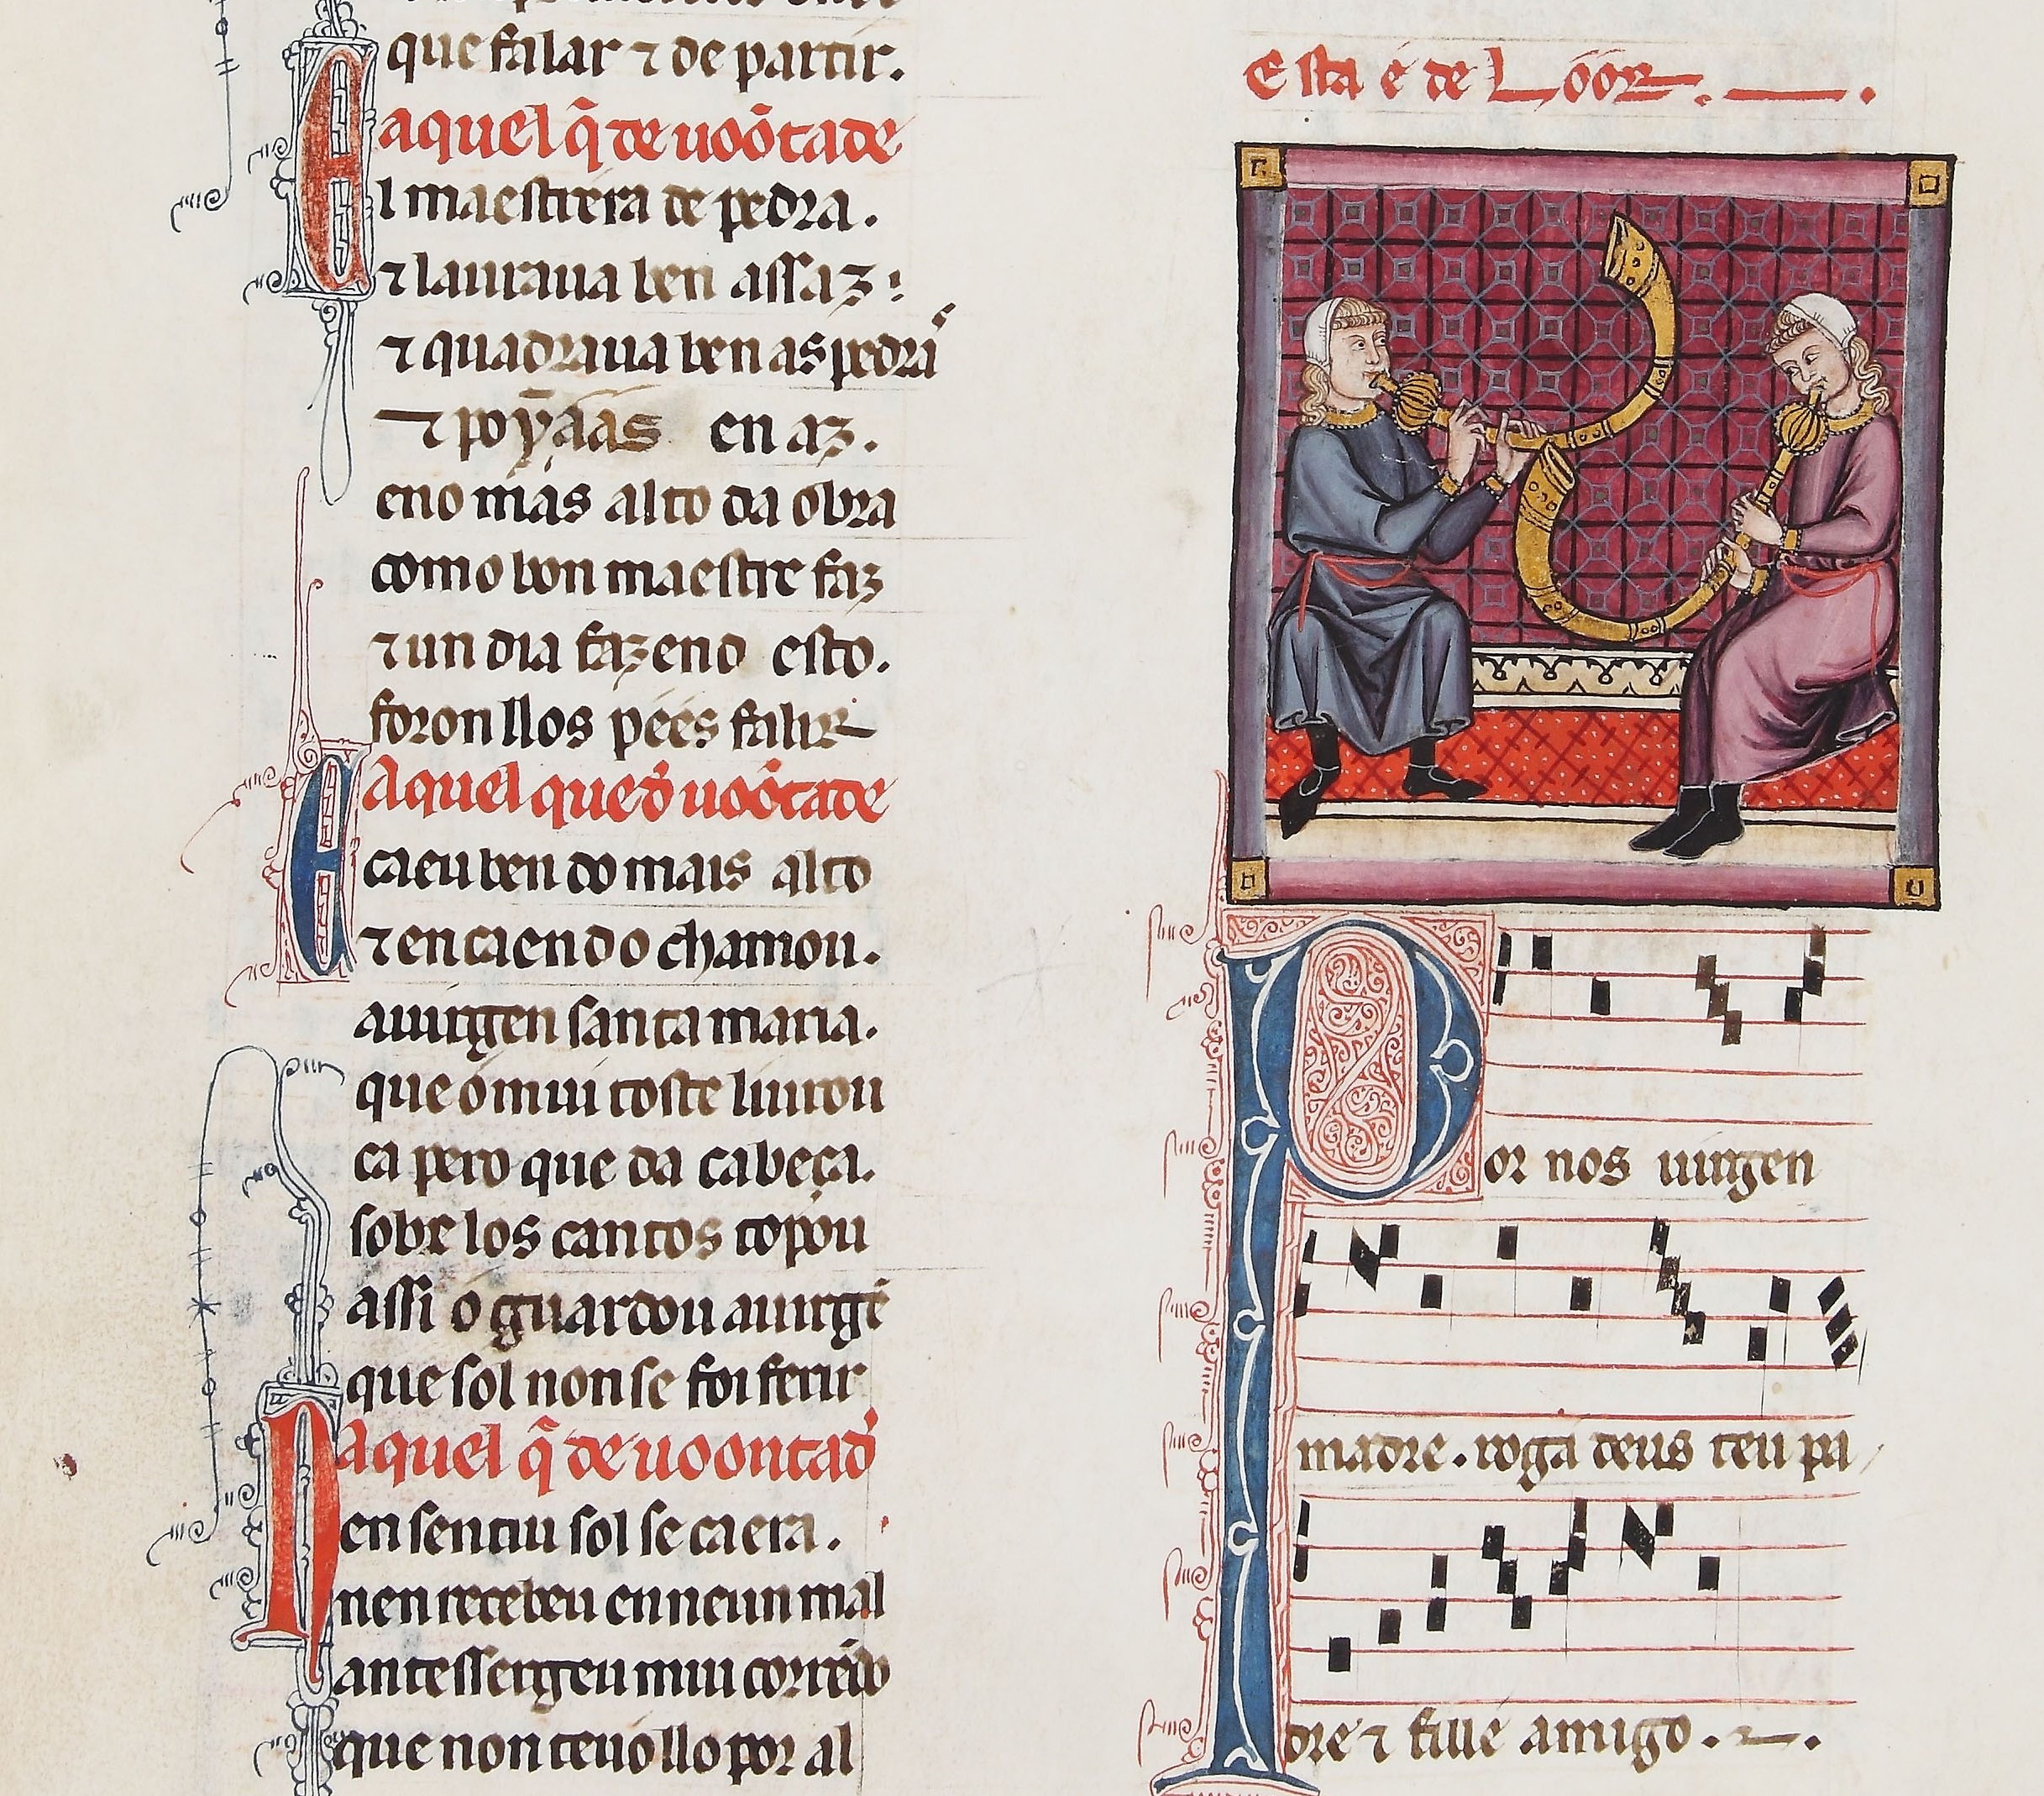 que falar ⁊ de partir.
aquel q̄ de uoōtade
El maestr era de pedra.
⁊ lauraua ben assaz:
⁊ quadraua ben as pedras
⁊ poỹaas en az.
eno mais alto da obra
como bon maestre faz
⁊ un dia fazend esto.
foron llos pées falir
A aquel que d' uoōtade
E caeu ben do mais alto
⁊ en caendo chamou.
a uirgen santa maria.
que o mui toste liurou
ca pero que da cabeça.
sobelos cantos topou
assi o guardou a uirgē
que sol non se foi ferir
aquel q̄ de uoontad'
Nen sentiu sol se caera.
nen recebeu en neun mal
ante ss ergeu mui corrēdo
que non teuo llo por al
Esta é de Lóor.
Por nos uirgen
madre. roga deus teu pa
dre ⁊ fille amigo.